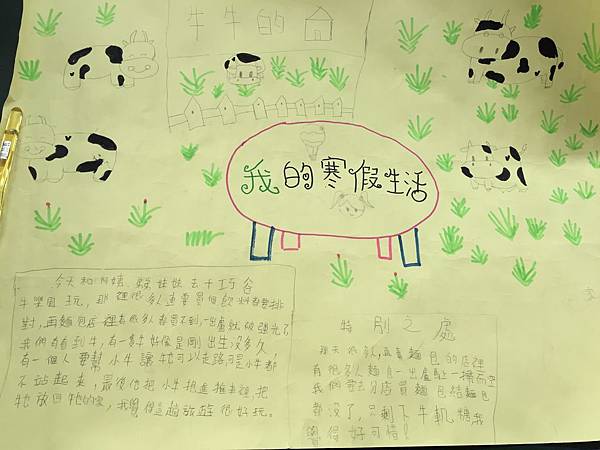 牛牛的
我的寒假生活
今天和阿嬤、 娃娃去十巧谷
牛樂園玩,那裡很多人連買個飲料都要排
對,再麵包店裡有很多人都買不到,一出盧就被強光了
我們有看到牛,有一隻牛好像是剛出生沒多久
有一個人要幫小牛讓牠可以走路可是小牛都
不站起來,最後他把小牛抱進推車裡把
牠放回牠的家,我覺得這趟旅遊很好玩。
特別之處
很多人,在賣麵包的店裡
有很多麵包一出盧就一掃而空
我們 去分店買麵包結麵包
都沒了,只剩下牛軋糖我
覺得好可惜!